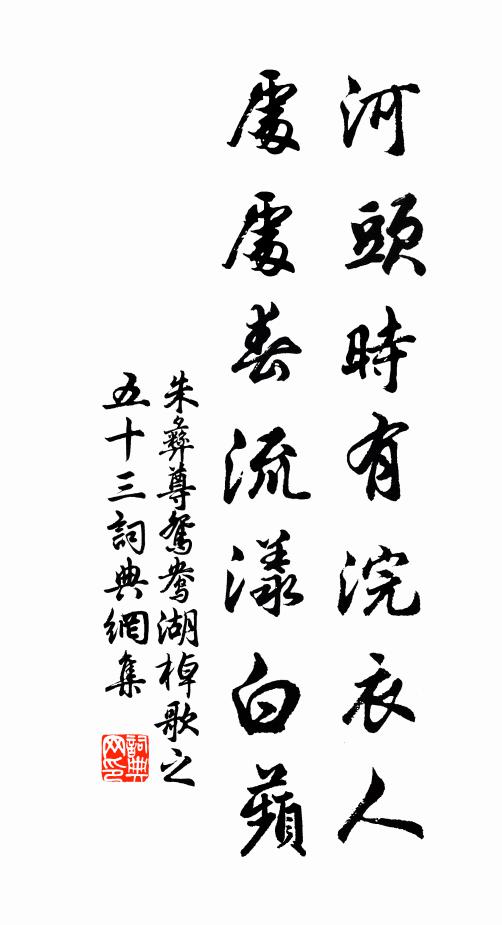 河頭時有浣衣人
處處春流漾白蘋
朱彝尊鴛鴦湖棹歌之
五十三詞典網集
詞典
网印